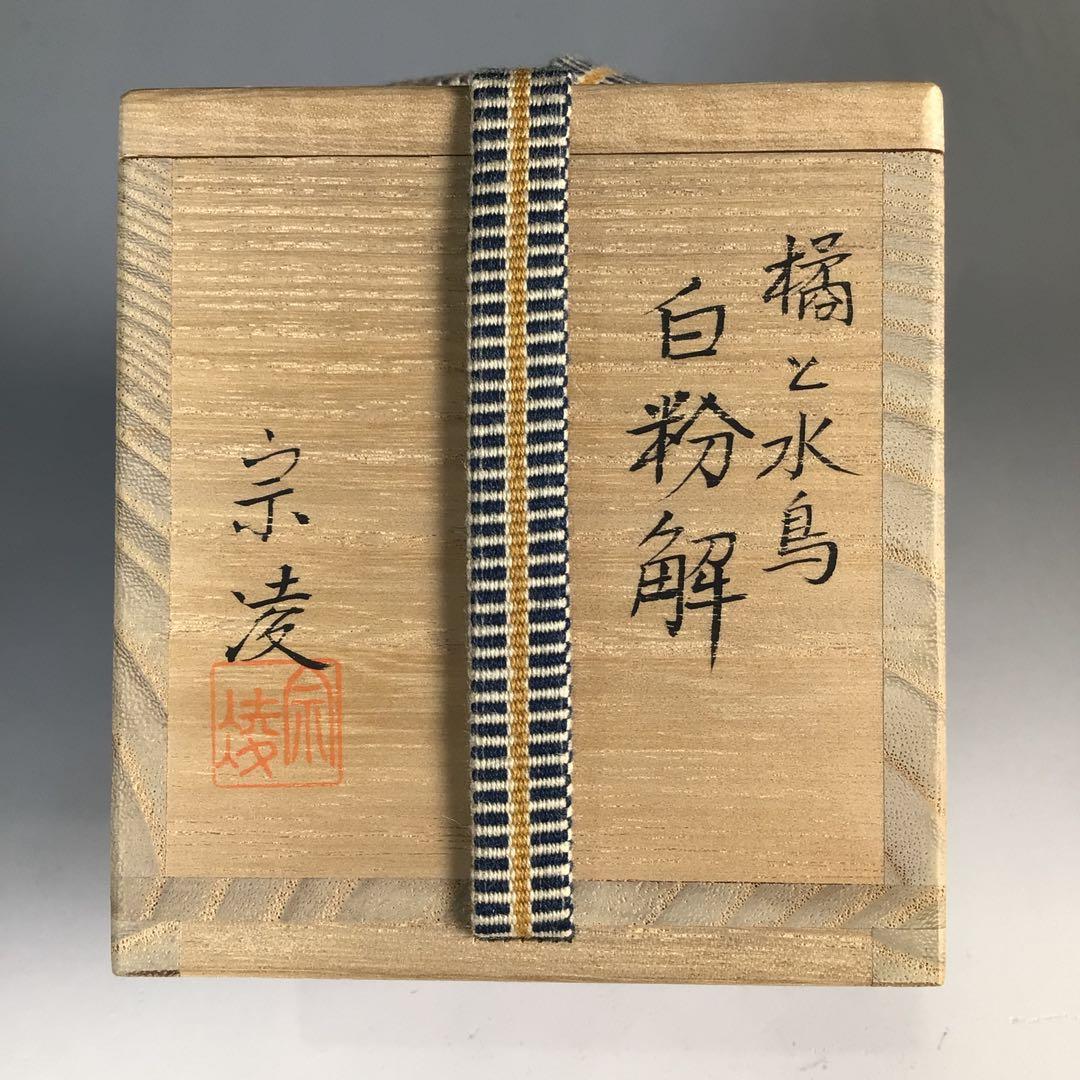 橘と水鳥
白粉解
宗凌
宗凌